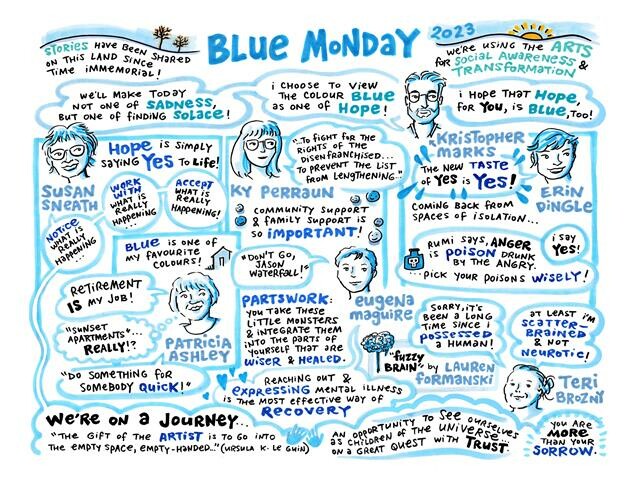 STORIES HAVE BEEN SHARED
ON THIS LAND SINCE
TIME IMMEMORIAL!
BLUE MONDAY
2023
WE'RE USING THE ARTS
FOR SOCIAL AWARENESS &
TRANSFORMATION
WE'LL MAKE TODAY
NOT ONE OF SADNESS,
BUT ONE OF FINDING SOLACE!
I CHOOSE TO VIEW
THE COLOUR BLUE
AS ONE OF HOPE!
I HOPE THAT HOPE,
FOR YOU, IS
BLUE, TOO!
KRISTOPHER
MARKS
SUSAN
SNEATH
HOPE IS SIMPLY
SAYING YES TO LIFE!
NOTICE
WHAT IS
REALLY
HAPPENING...
WORK
WITH
WHAT IS
REALLY
HAPPENING...
ACCEPT
WHAT IS
REALLY
HAPPENING!
KY PERRAUN
"...TO FIGHT FOR THE
RIGHTS OF THE
DISENFRANCHISED...
TO PREVENT THE LIST
FROM LENGTHENING."
COMMUNITY SUPPORT
& FAMILY SUPPORT IS
SO IMPORTANT!
THE NEW TASTE
OF YES IS YES!
ERIN
DINGLE
COMING BACK FROM
SPACES OF ISOLATION...
I SAY
YES!
RUMI SAYS, ANGER
IS POISON DRUNK
BY THE ANGRY.
...PICK YOUR POISONS WISELY!
BLUE IS ONE OF
MY FAVOURITE
COLOURS!
RETIREMENT
IS MY JOB!
"SUNSET
APARTMENTS"...
REALLY!?
"DO SOMETHING FOR
SOMEBODY QUICK!"
PATRICIA
ASHLEY
"DON'T GO,
JASON
WATERFALL!"
EUGENA
MAGUIRE
PARTSWORK:
YOU TAKE THESE
LITTLE MONSTERS
& INTEGRATE THEM
INTO THE PARTS OF
YOURSELF THAT ARE
WISER & HEALED.
REACHING OUT &
EXPRESSING MENTAL ILLNESS
IS THE MOST EFFECTIVE WAY OF
RECOVERY
SORRY, IT'S
BEEN A LONG
TIME SINCE I
POSSESSED
A HUMAN!
"FUZZY
BRAIN" BY LAUREN
FORMANSKI
AT LEAST I'M
SCATTER-
BRAINED
& NOT
NEUROTIC!
TERI
BROZNY
WE'RE ON A JOURNEY...
"THE GIFT OF THE ARTIST IS TO GO INTO
THE EMPTY SPACE, EMPTY-HANDED..." (URSULA K. LE GUIN)
AN OPPORTUNITY TO SEE OURSELVES
AS CHILDREN OF THE UNIVERSE...
ON A GREAT QUEST WITH TRUST.
YOU ARE
MORE
THAN YOUR
SORROW.